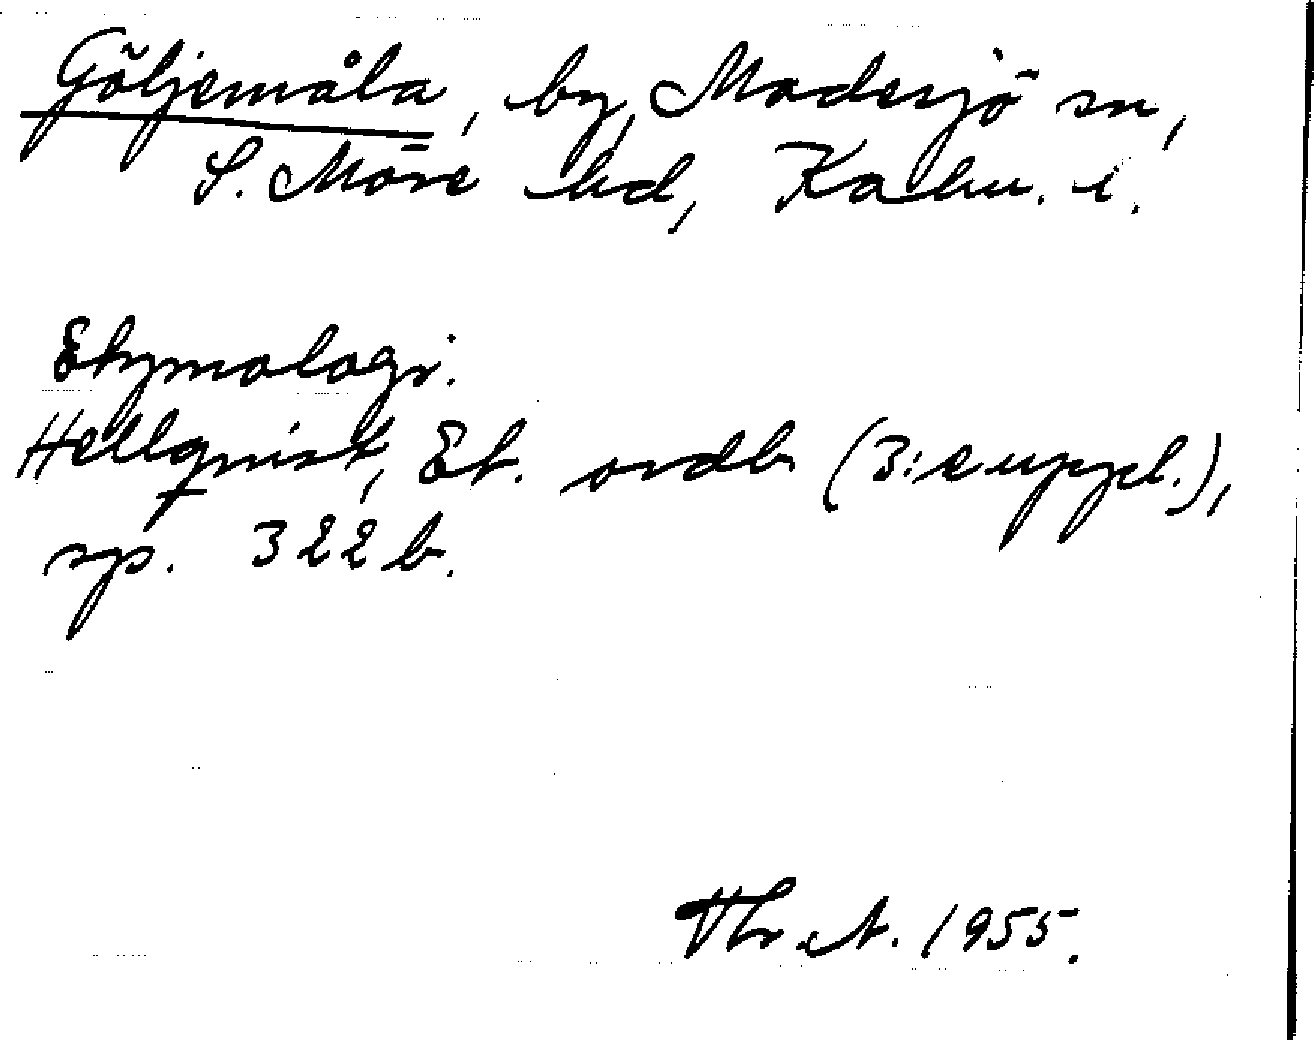 Göljemåla, by, Madesjö sn,
S. Möre hd, Kalm. l.
Etymologi.
Hellquist, Et. ordb (3:e uppl.),
sp. 322 b.
Thr. A. 1955.